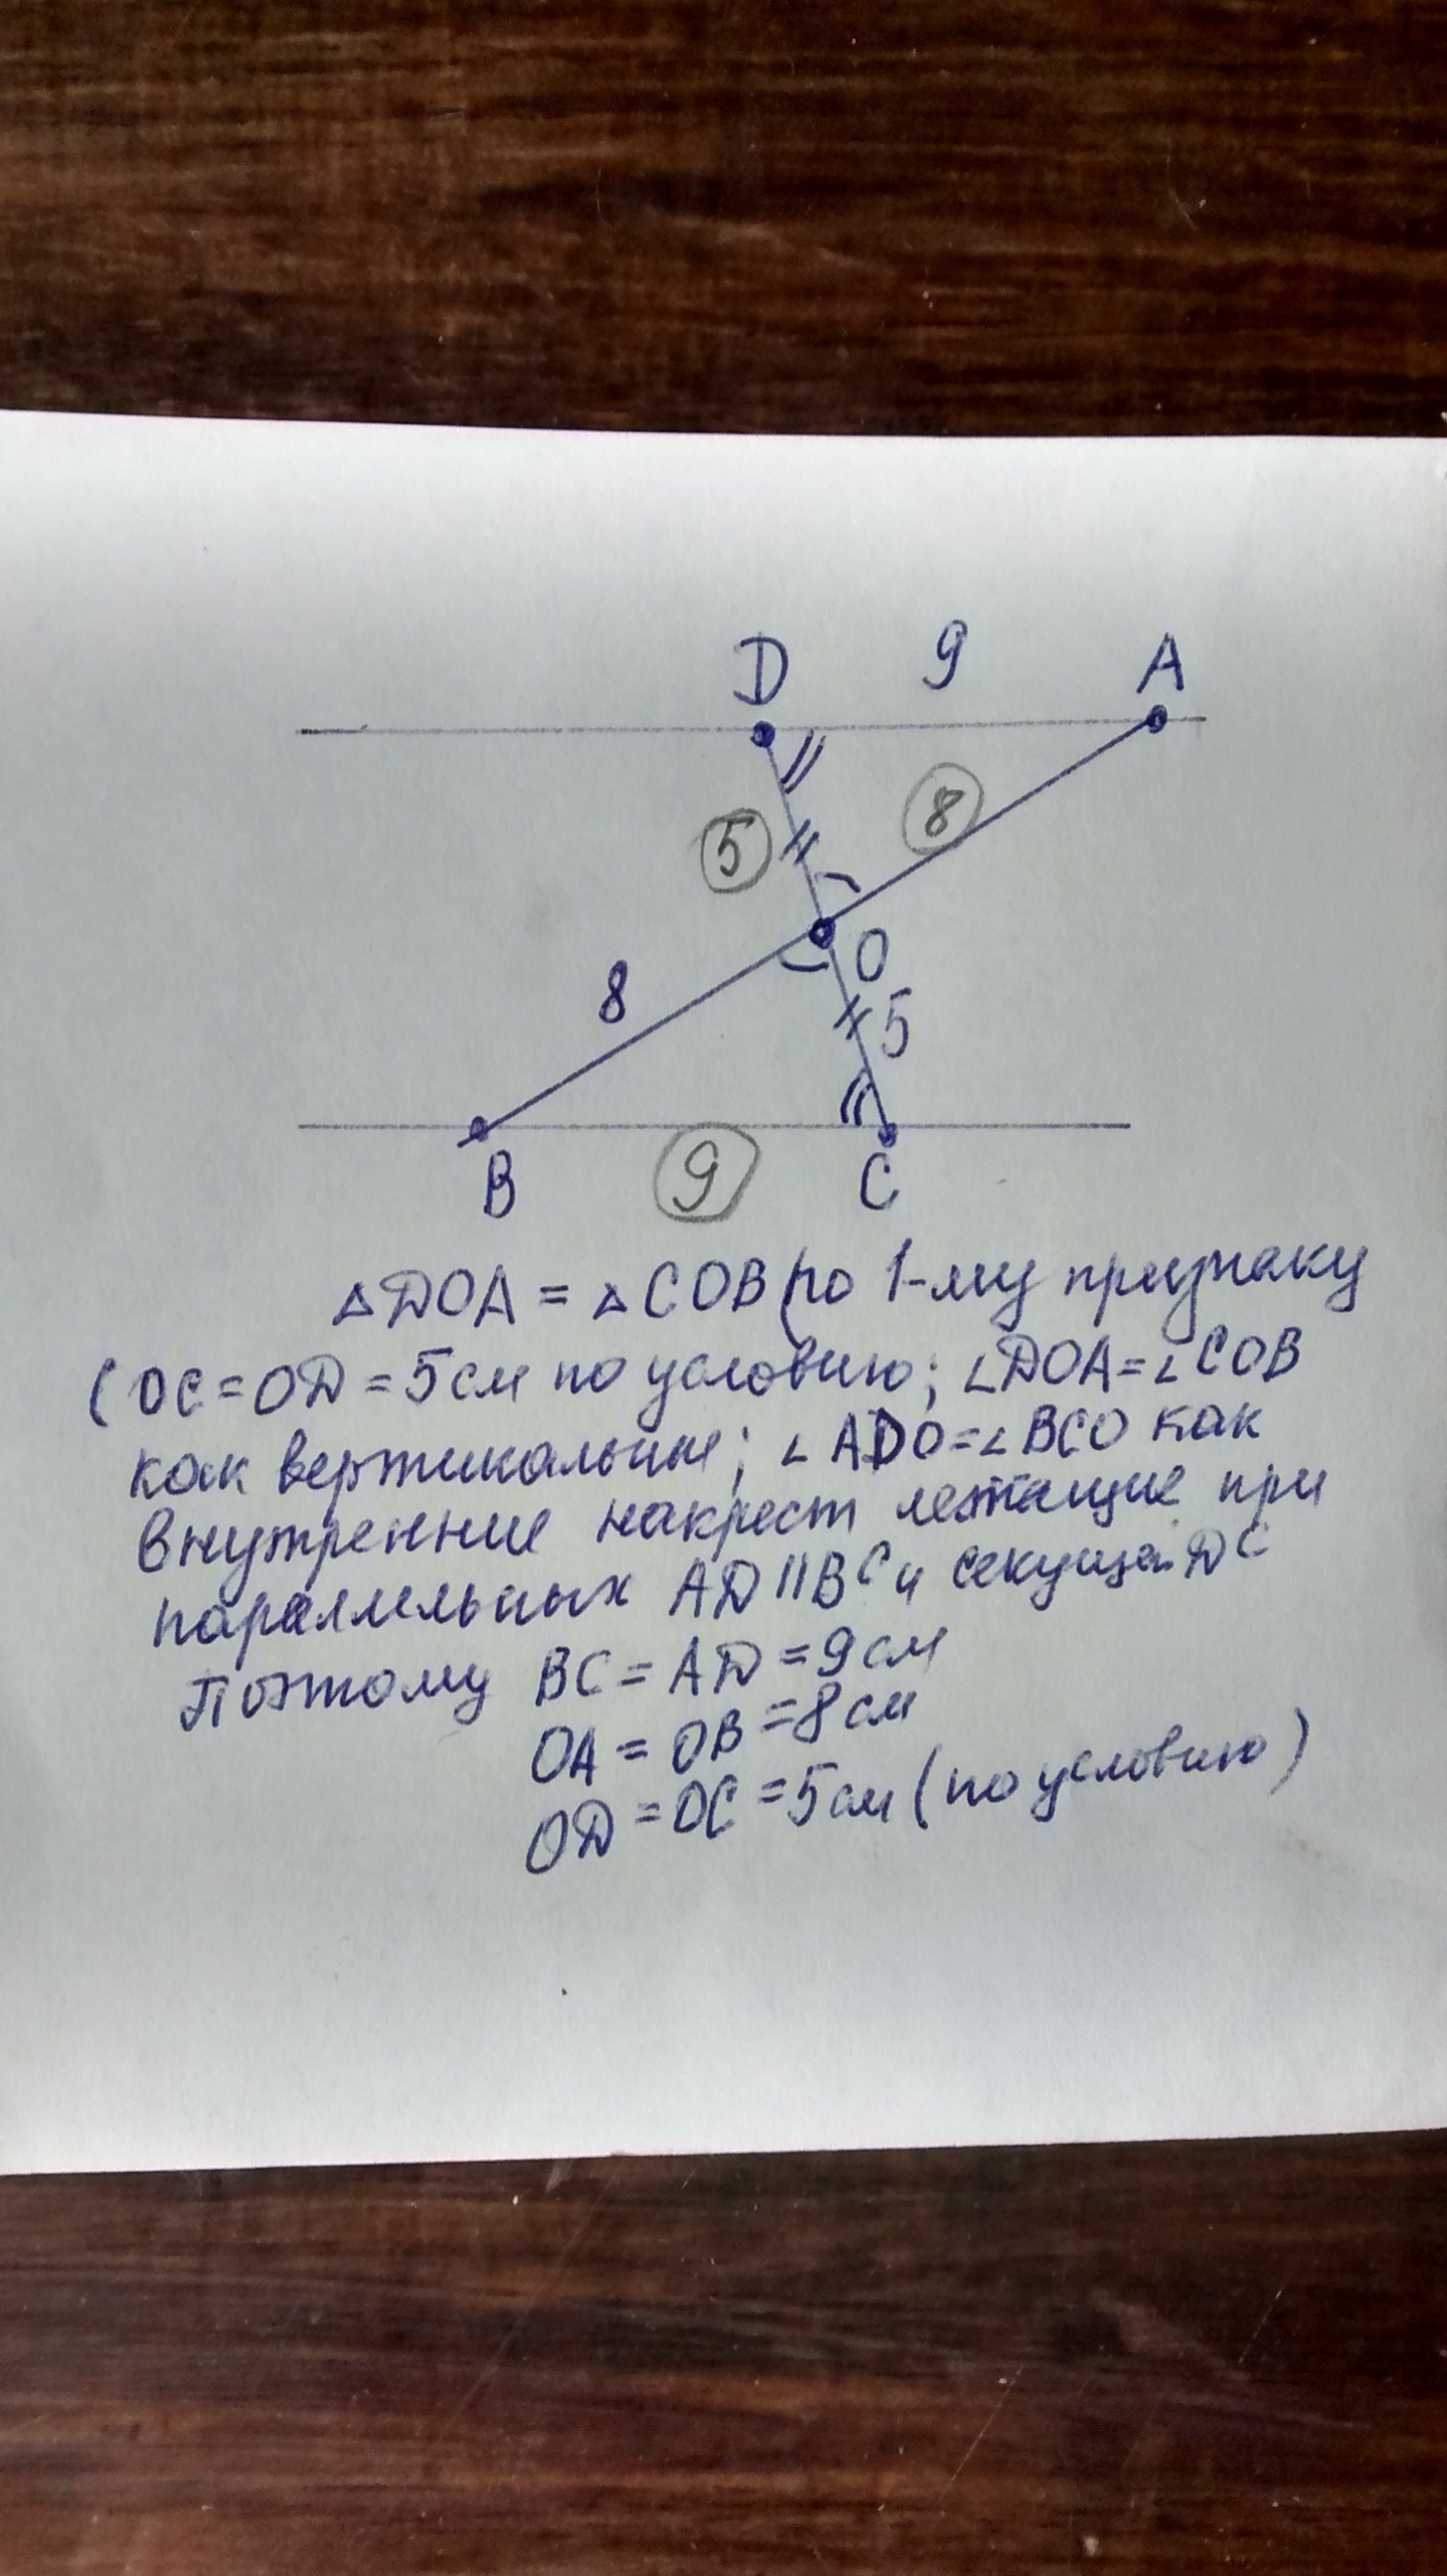 D 9 A
5 8
O
8 5
B 9 C
△DOA = △COB (по 1-му признаку
(OC=OD=5см по условию; ∠DOA=∠COB
как вертикальные; ∠ADO=∠BCO как
внутренние накрест лежащие при
параллельных AD||BC и секущей DC
Поэтому BC = AD = 9см
OA = OB = 8см
OD = OC = 5см (по условию)